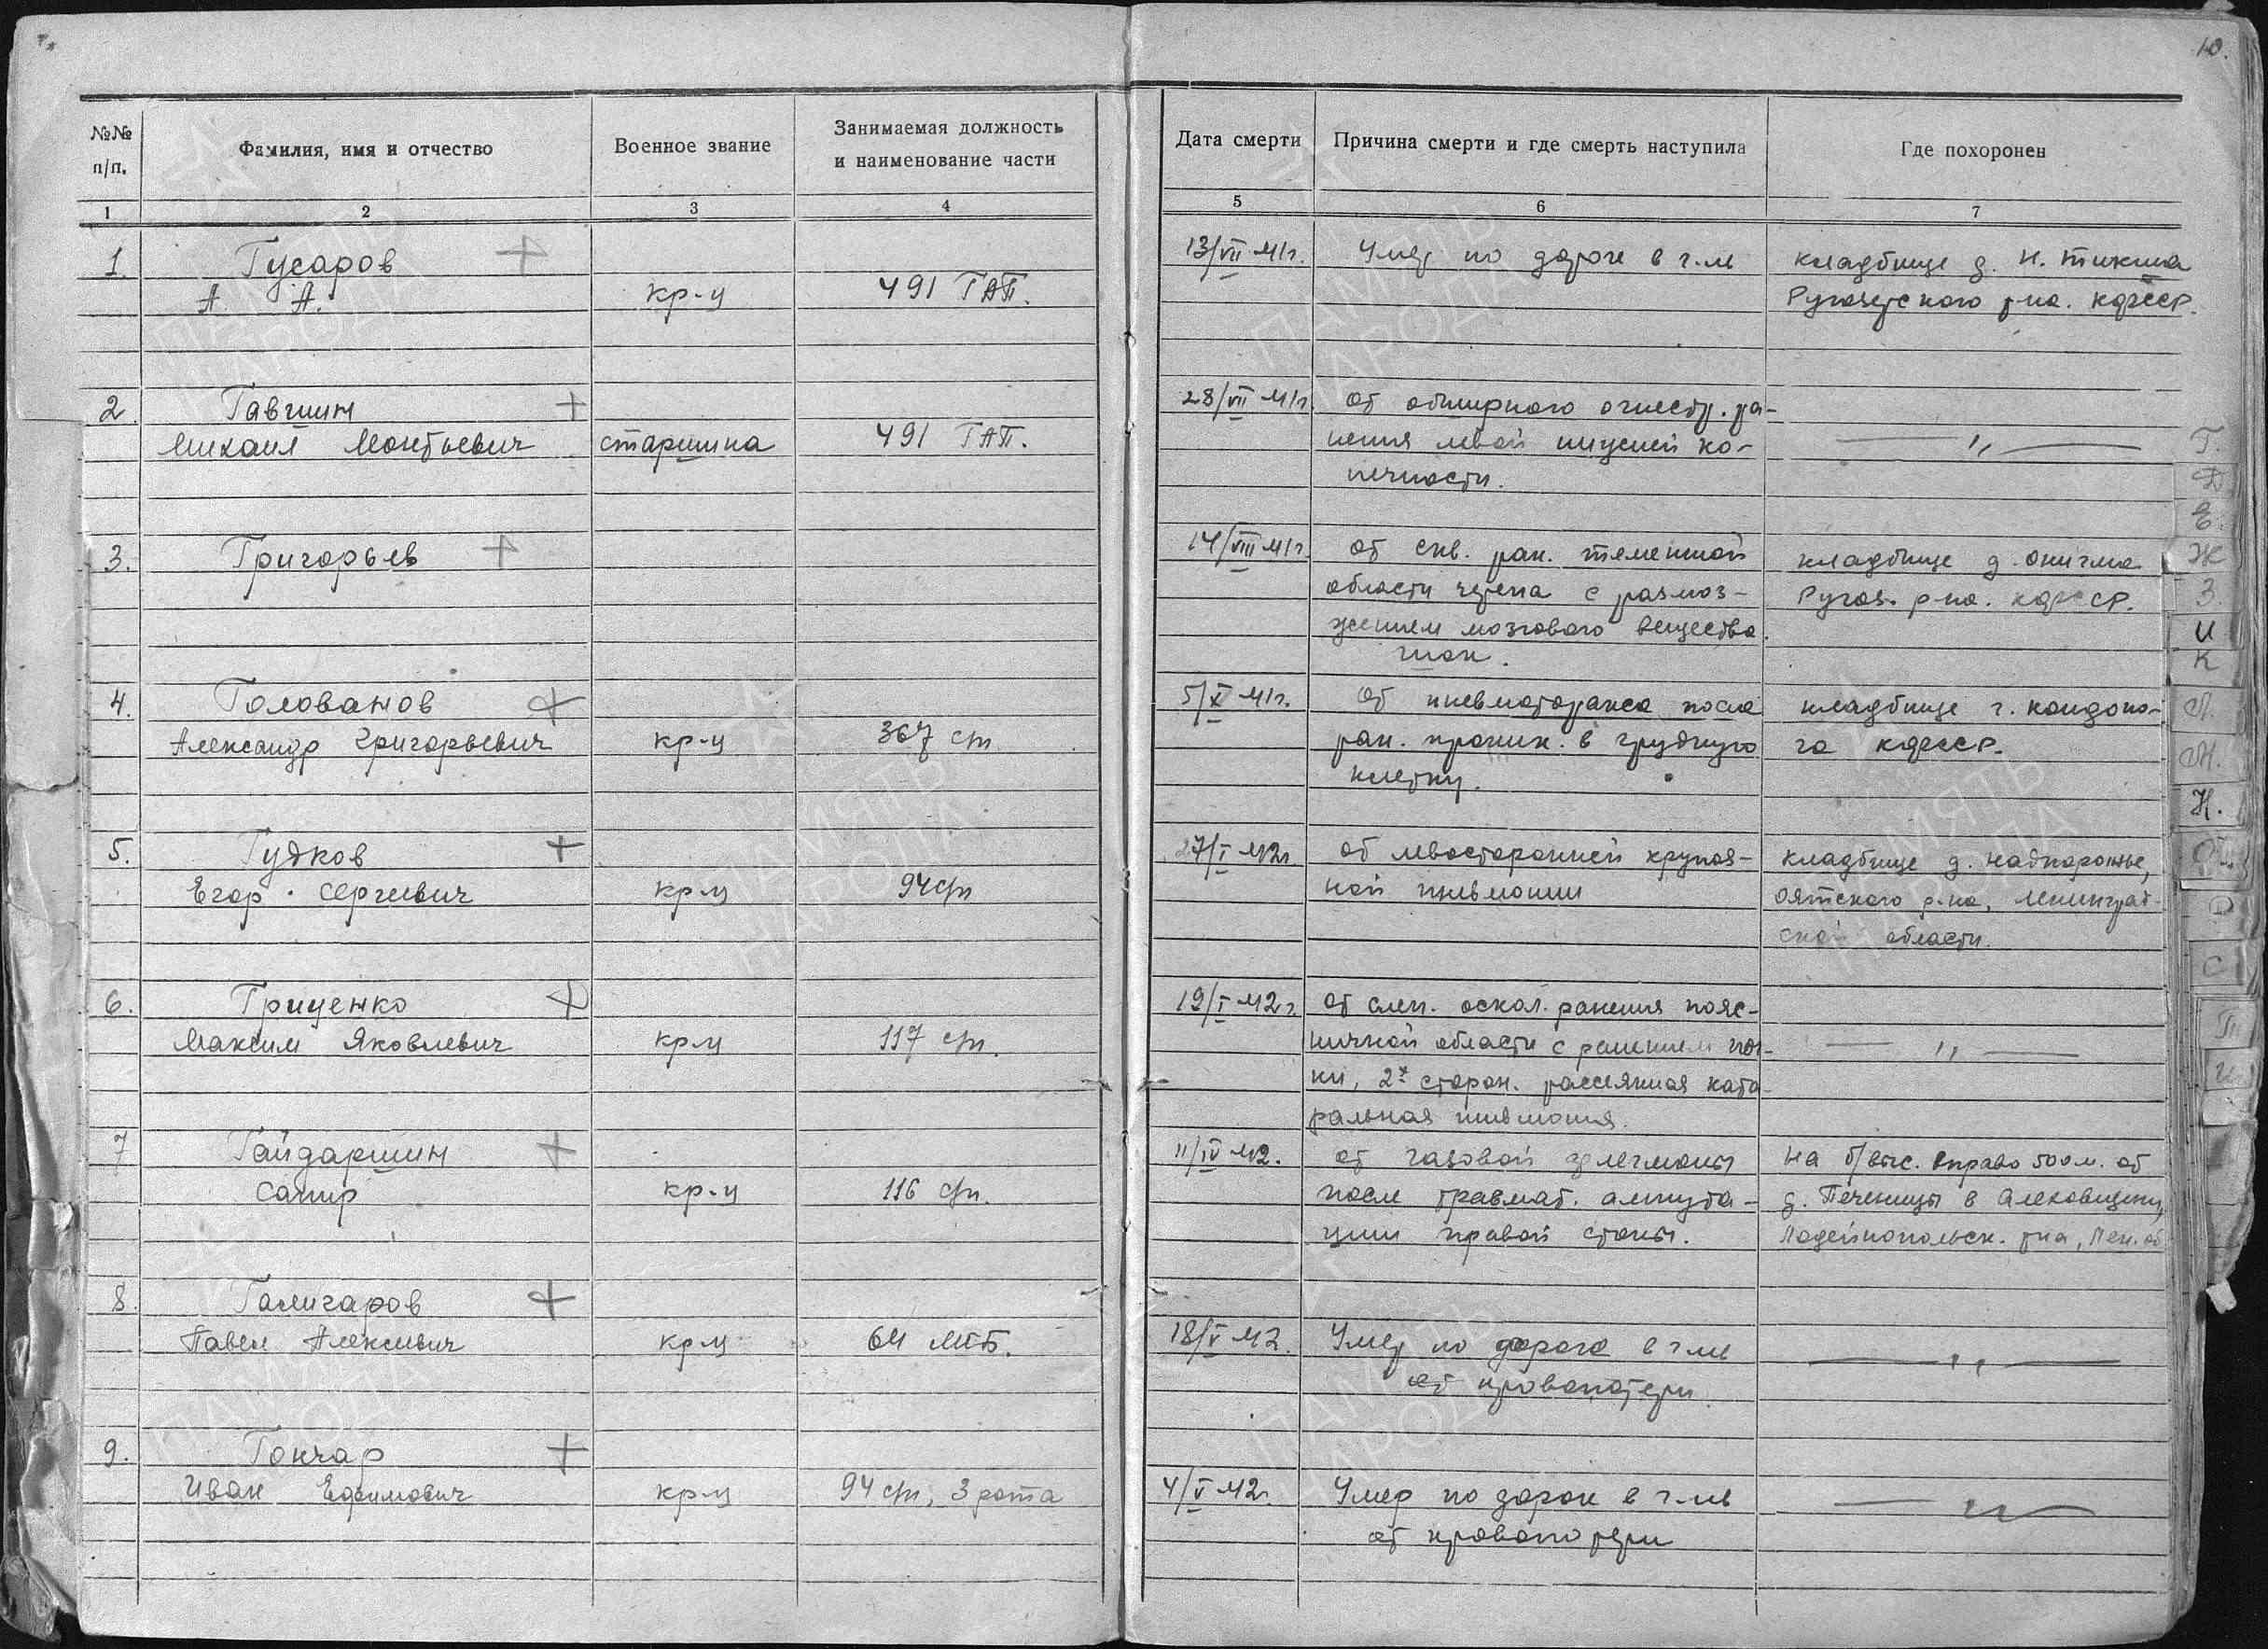 10.
№№ п/п.
Фамилия, имя и отчество
Военное звание
Занимаемая должность и наименование части
Дата смерти
Причина смерти и где смерть наступила
Где похоронен
1 2 3 4 5 6 7
1. Гусаров 13/VII 41г. Умер по дороге в г.ль кладбище д. Н. Тикша
А. А. кр-ц 491 ГАП. Ругозерского р-на. КФССР.
2. Гавшин 28/VII 41г. От обширного огнестр. ра-
Михаил Монтьевич старшина 491 ГАП. нения левой нижней ко- — „ —
нечности.
3. Григорьев 14/VIII 41г. От скв. ран. теменной кладбище д. Онигма
области черепа с размоз- Ругоз. р-на. КФССР.
жением мозгового вещества.
шок.
4. Голованов 5/X 41г. От пневмоторакса после кладбище г. Кондопо-
Александр Григорьевич кр-ц 367 сп ран. проник. в грудную га КФССР.
клетку.
5. Гудков 27/I 42г. От левосторонней крупоз- кладбище д. Надпорожье,
Егор Сергеевич кр-ц 94 сп ной пневмонии Оятского р-на, Ленинград-
ской области.
6. Гриценко 19/I 42г. От слеп. оскол. ранения пояс-
Максим Яковлевич кр-ц 117 сп. ничной области с ранением поч- — „ —
ки, 2х сторон. рассеянная ката-
ральная пневмония.
7 Гайдаршин 11/IV 42. От газовой флегмоны На б/выс. вправо 500 м. от
Сапир кр-ц 116 сп. после травмат. ампута- д. Печеницы в Алеховщину,
ции правой стопы. Лодейнопольск. р-на, Лен. об
8. Галигаров
Павел Алексеевич кр-ц 64 МСБ. 18/V 42. Умер по дороге в г-ль — „ —
от кровопотери.
9. Гончар
Иван Ефимович кр-ц 94 сп, 3 рота 4/V 42г. Умер по дороге в г-ль — „ —
от кровопотери
Г.
Д
Е.
Ж
З
И
К
Л.
М.
Н.
О
Р
С
П
ПАМЯТЬ НАРОДА